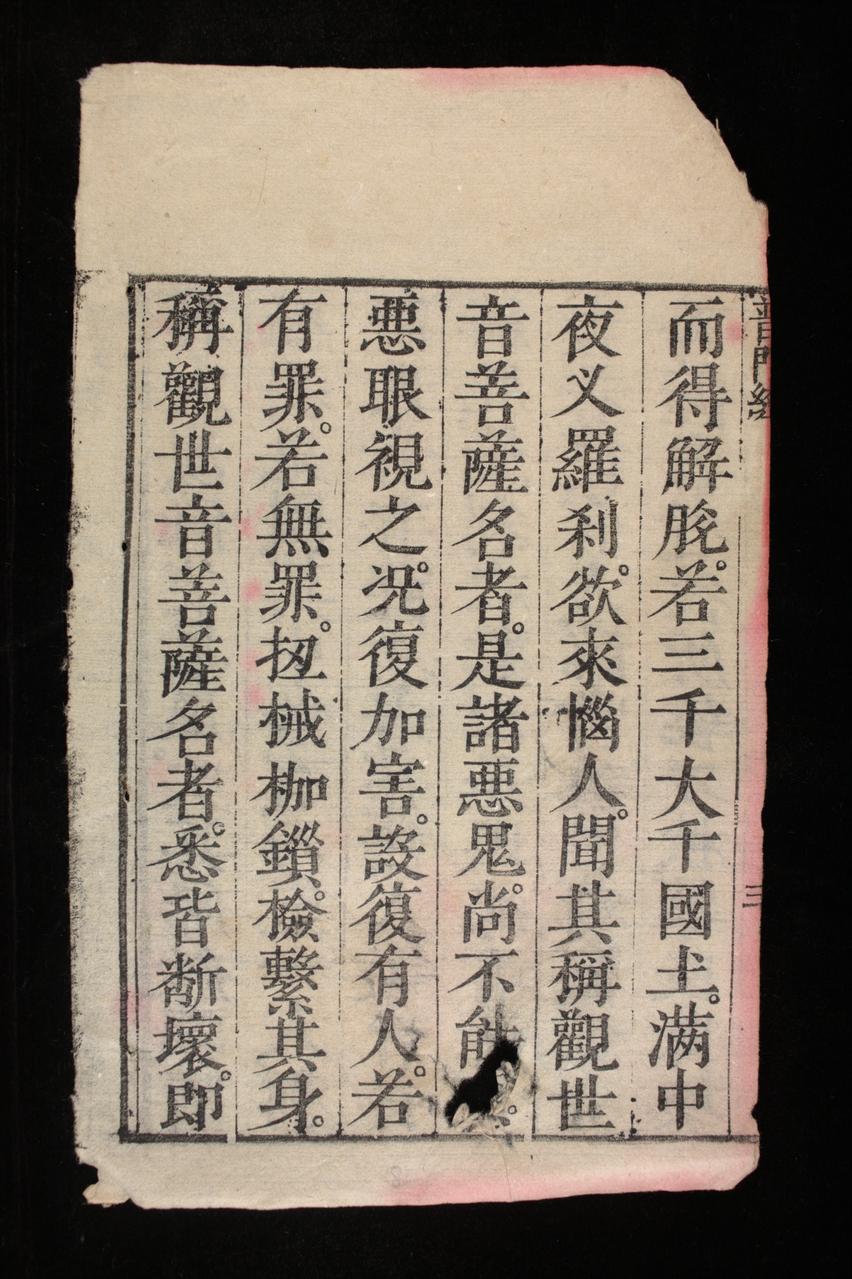 普門經
三
而得解脫。若三千大千國土。滿中
夜叉羅刹。欲來惱人。聞其稱觀世
音菩薩名者。是諸惡鬼。尚不能
惡眼視之。况復加害。設復有人。若
有罪。若無罪。杻械枷鎖。檢繫其身。
稱觀世音菩薩名者。悉皆斷壞。即